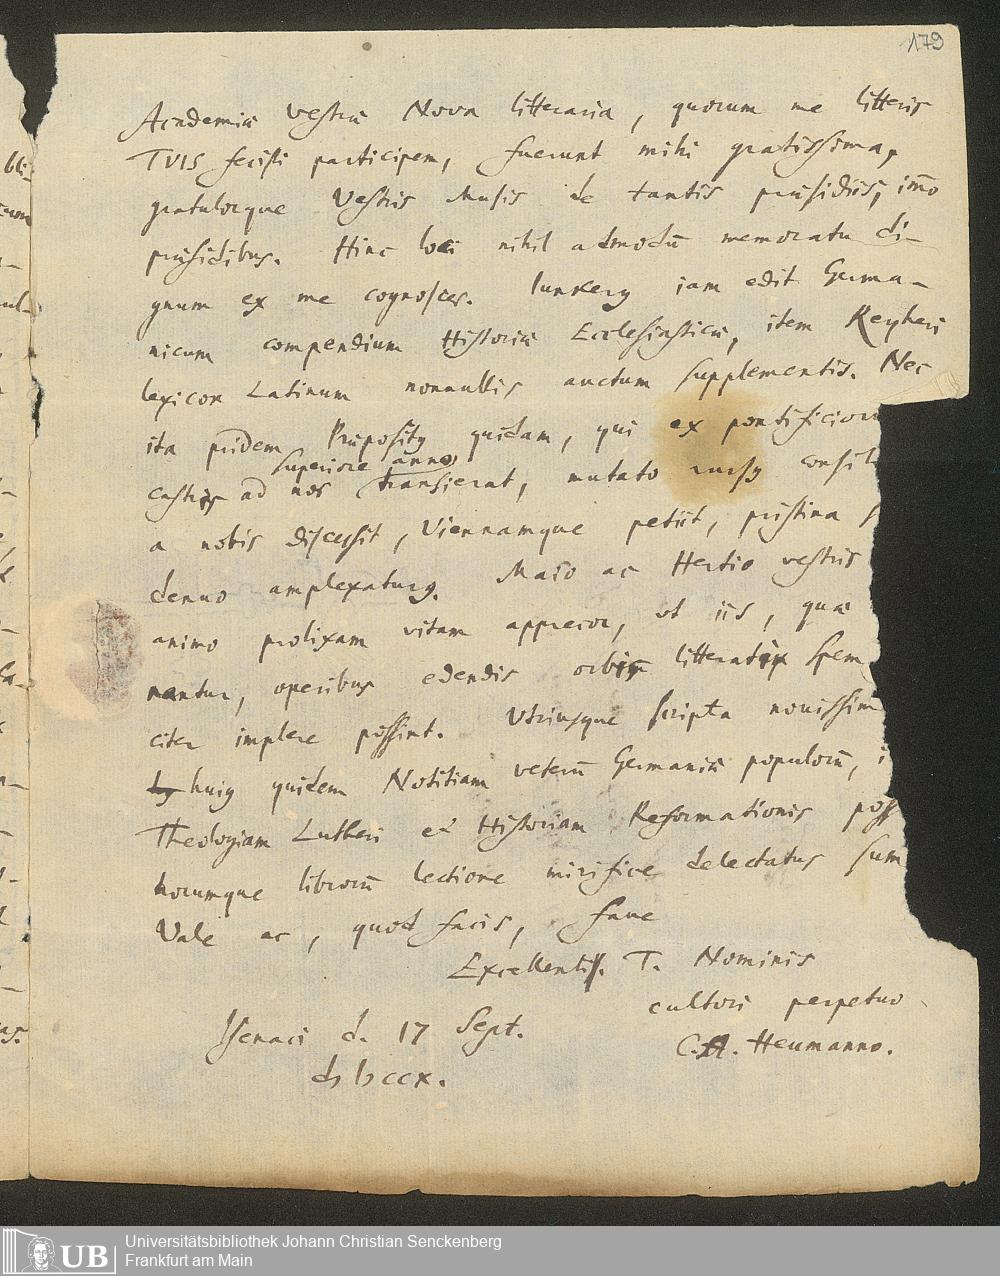 179
Academiæ vestræ Nova litteraria, quorum me litteris
TVIS fecisti participem, fuerunt mihi gratissima,
gratulorque Vestris Musis de tantis præsidiis, imo
præsidibus. Hinc loci nihil admodū memoratu di-
gnum ex me cognosces. Iunkerꝰ iam edit Germa-
nicum compendium Historiæ Ecclesiasticæ, item Reyheri
lexicon Latinum nonnullis auctum supplementis. Nec
ita pridem Præpositꝰ quidam, qui ex pontificior
superiore anno
castris ad nos transierat, mutato rursꝰ consil
a nobis discessit, Viennamque petiit, pristina s
denuo amplexaturꝰ. Maio ac Hertio vestris
animo prolixam vitam apprecor, ut iis, quæ
nantur, operibus edendis orbis litterati spem
citer implere possint. Utriusque scripta novissim
huiꝰ quidem Notitiam veterū Germaniæ populorū, i
Theologiam Lutheri et Historiam Reformationis poss
horumque librorū lectione mirifice delectatus sum
Vale ac, quod facis, fave
Excellentiss. T. Nominis
cultori perpetuo
C.A. Heumanno.
Isenaci d. 17 Sept.
cIɔ Iɔ ccx.
Universitätsbibliothek Johann Christian Senckenberg
Frankfurt am Main
UB